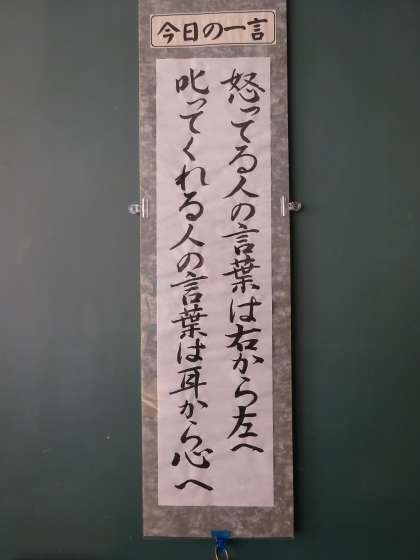 今日の一言
怒ってる人の言葉は右から左へ
叱ってくれる人の言葉は耳から心へ